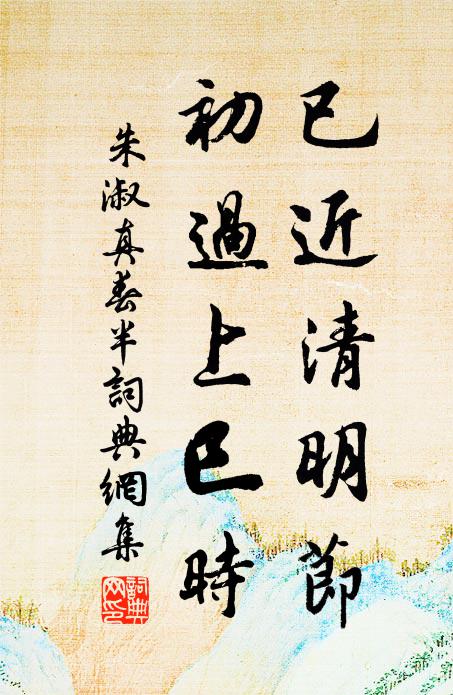 已近清明節
初過上巳時
朱淑真春半詞典網集
詞典網印